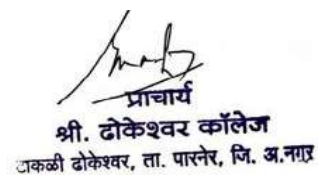 प्राचार्य
श्री. ढोकेश्वर कॉलेज
टाकळी ढोकेश्वर, ता. पारनेर, जि. अ.नगर